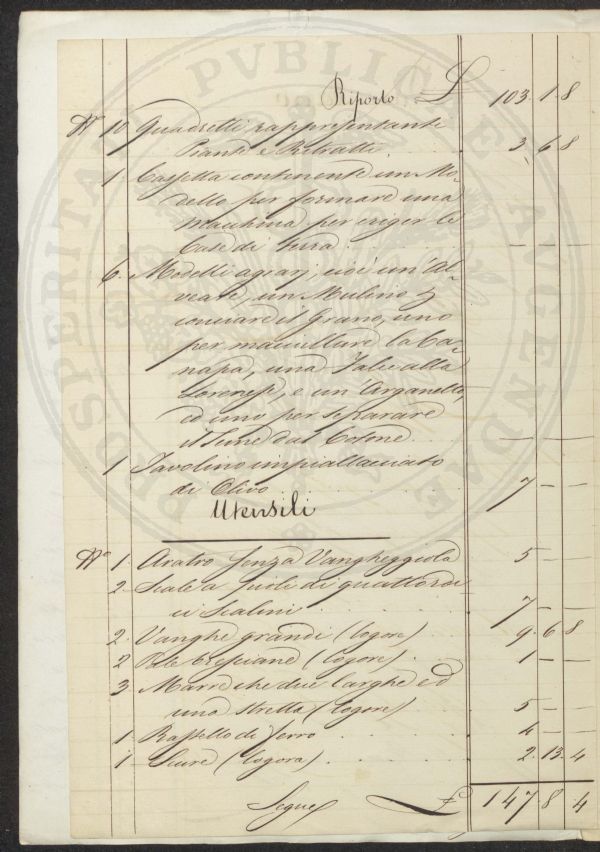 Riporto £ 103. 1. 8
N.º 10 Quadretti rappresentanti
Piante e Ritratti . 3. 6 8
1 Cassetta continente un Mo-
dello per formare una
Macchina per eriger le
Case di terra . — — —
6. Modelli agrarj, cioè un' Al-
veare, un Mulino
conciare il Grano, uno
per maciullare la Ca-
napa, una Falce alla
e un' Arganello,
ed uno per separare
il Seme dal Cotone . — — —
1 Tavolino impiallacciato
di Olivo . 7 — —
Utensili
N.º 1. Aratro senza Vangheggiola 5 — —
2. Scale a pioli di quattordi
ci Scalini . 7 — —
2. Vanghe grandi (logore) . 9. 6 8
2 Pale (logore) . 1 — —
3 Marre che due larghe ed
una stretta (logore) 5 — —
1. Rastello di ferro . 4 — —
1. Scure (logora) . 2. 13. 4
Segue £ 147 8. 4
PROSPERITATI PVBLICAE AVGENDAE